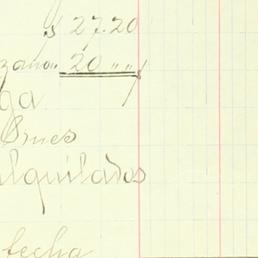 $ 27.20
zano 20 " "
ga
Ornes
lquilados
fecha